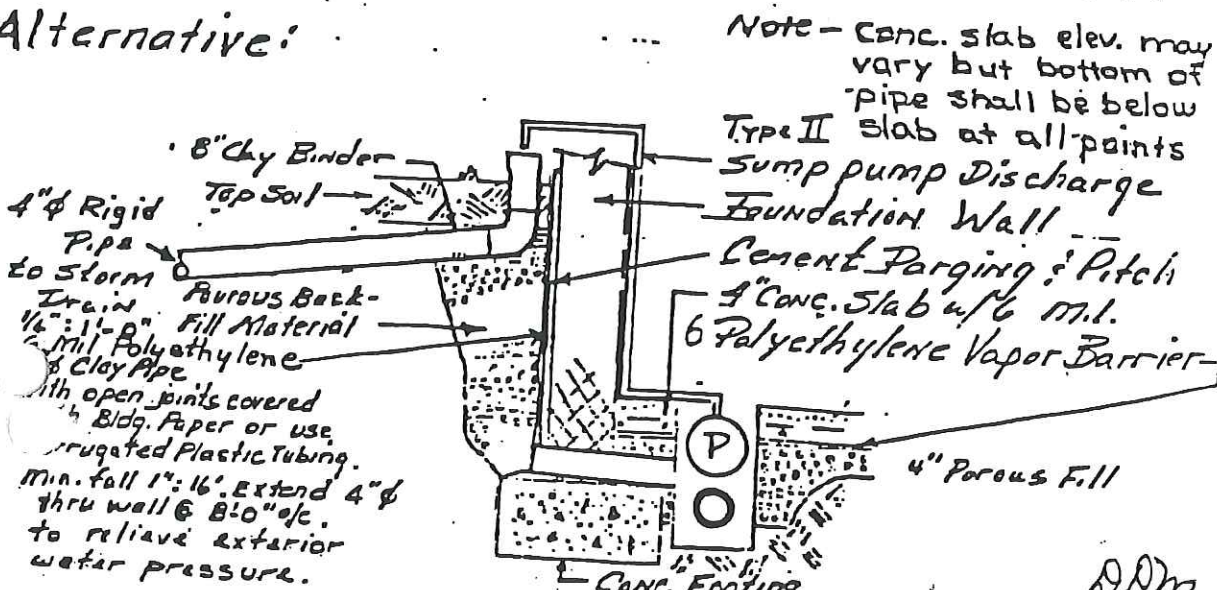 Alternative:
Note - Conc. slab elev. may
vary but bottom of
pipe shall be below
slab at all points
8" Clay Binder
Top Soil
4"⌀ Rigid
Pipe
to Storm
Drain
: 1'-0"
Porous Back-
Fill Material
Mil Polyethylene
⌀ Clay Pipe
with open joints covered
Bldg. Paper or use
rrugated Plastic Tubing.
Min. fall 1": 16'. Extend 4"⌀
thru wall @ 8'-0" o/c.
to relieve exterior
water pressure.
Type II
Sump pump Discharge
Foundation Wall
Cement Parging & Pitch
4" Conc. Slab w/6 mil.
6 Polyethylene Vapor Barrier
P
4" Porous Fill
Conc. Footing